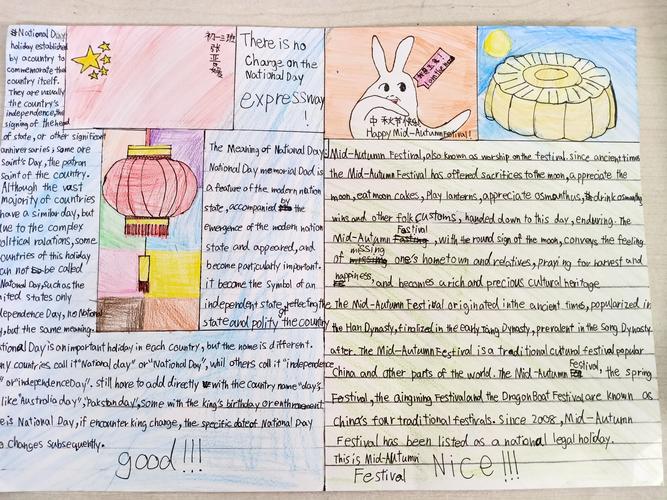 #National Day
holiday established
by a country to
commemorate the
country itself.
They are usually
the country's
independence, the
signing of the head
of state, or other significant
anniversaries; some are
Saint's Day, the patron
saint of the country.
Although the vast
majority of countries
have a similar day, but
due to the complex
political relations, some
countries of this holiday
can not be called
National Day, such as the
United states only
Independence Day, no National
y, but the same meaning.
初一三班
张
There is no
Charge on the
National Day
expressway
!
The Meaning of National Day
National Day memorial Dad is
a feature of the modern nation
state, accompanied by the
emergence of the modern nation
state and appeared, and
become particularly important.
it become the Symbol of an
independent state, reflecting the
state and polity of the country
ational Day is an important holiday in each country, but the name is different.
ny countries call it "National day" or "National Day", whil others call it "independence
" or "independence Day". still have to add directly with the country name "day".
like "Australia day", "Pakistan day", some with the king's birthday or
e is National Day, if encounter king change, the specific date of National Day
o Changes subsequently.
good!!!
I am the moon
中秋节快乐
Happy Mid-Autumn Festival!
Mid-Autumn Festival, also known as worship on the festival. since ancient times
the Mid-Autumn Festival has offered sacrifices to the moon, appreciate the
moon, eat moon cakes, play lanterns, appreciate osmanthus, drink osmanthus
wins and other folk customs, handed down to this day, enduring. The
Mid-Autumn Festival, with the round sign of the moon, conveys the feeling
of missing one's hometown and relatives, praying for harvest and
happiness, and becomes a rich and precious cultural heritage
the Mid-Autumn Festival originated in the ancient times, popularized in
the Han Dynasty, finalized in the early Tang Dynasty, prevalent in the Song Dynasty.
after. The Mid-Autumn Festival is a traditional cultural festival popular
China and other parts of the world. The Mid-Autumn Festival, the spring
Festival, the aingming Festival and the Dragon Boat Festival are known as
China's four traditional festivals. Since 2008, Mid-Autumn
Festival has been listed as a national legal holiday.
This is Mid-Autumn
Festival
Nice!!!